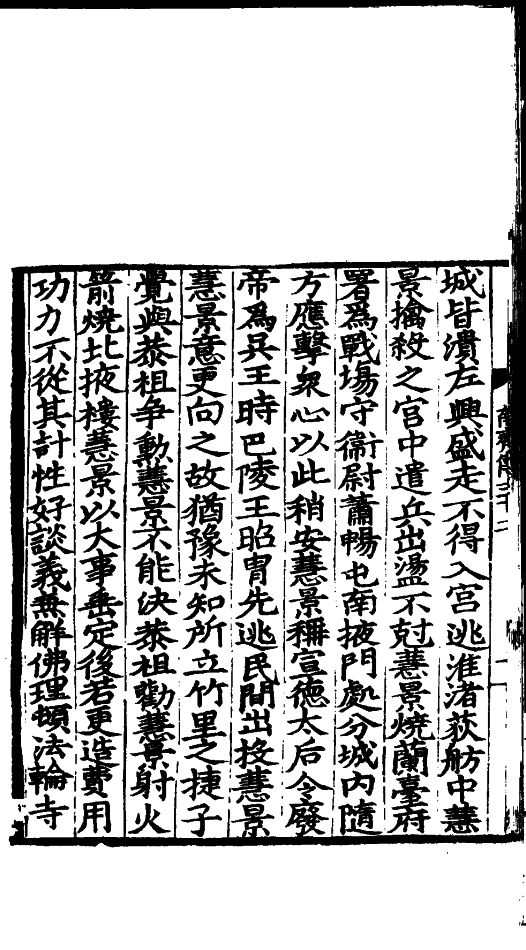 城皆潰左興盛走不得入宮逃淮渚荻舫中慧
景擒殺之宮中遣兵出盪不尅慧景燒蘭臺府
署為戰場守衛尉蕭暢屯南掖門處分城内隨
方應擊衆心以此稍安慧景稱宣德太后令廢
帝為吳王時巴陵王昭胄先逃民間出投慧景
慧景意更向之故猶豫未知所立竹里之捷子
覺與恭祖争勲慧景不能決恭祖勸慧景射火
箭燒北掖樓慧景以大事垂定後若更造費用
功力不從其計性好談義兼解佛理頓法輪寺